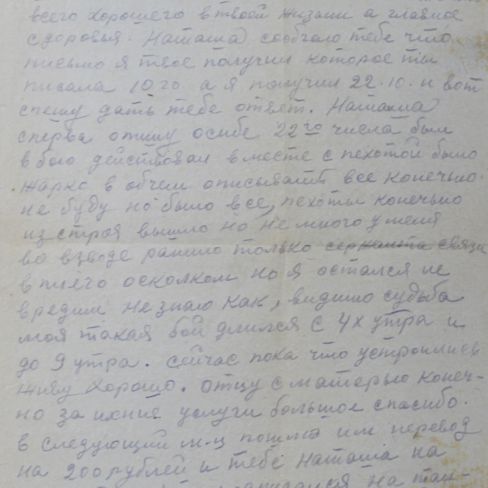 всего хорошего в твоей жизни а главное
здоровья. Наташа сообчаю тебе что
письмо я твое получил которое ты
писала 10го а я получил 22.10. и вот
спешу дать тебе ответ. Наташа
сперва опишу осибе 22го числа был
в бою действовал вместе с пехотой было
жарко в обчем описывать все конечно
не буду но было все, пехоты конечно
из строя вышло но не много у меня
во взводе ранило только сержанта связи
в плечо осколком но я остался не
вредим не знаю как, видимо судьба
моя такая бой длился с 4х утра и
до 9 утра. Сейчас пока что устроились
живу хорошо. отцу с матерью конеч-
но за ихние услуги большое спасибо.
в следующий м-ц пошлю им перевод
на 200 рублей и тебе Наташа на
на тан-